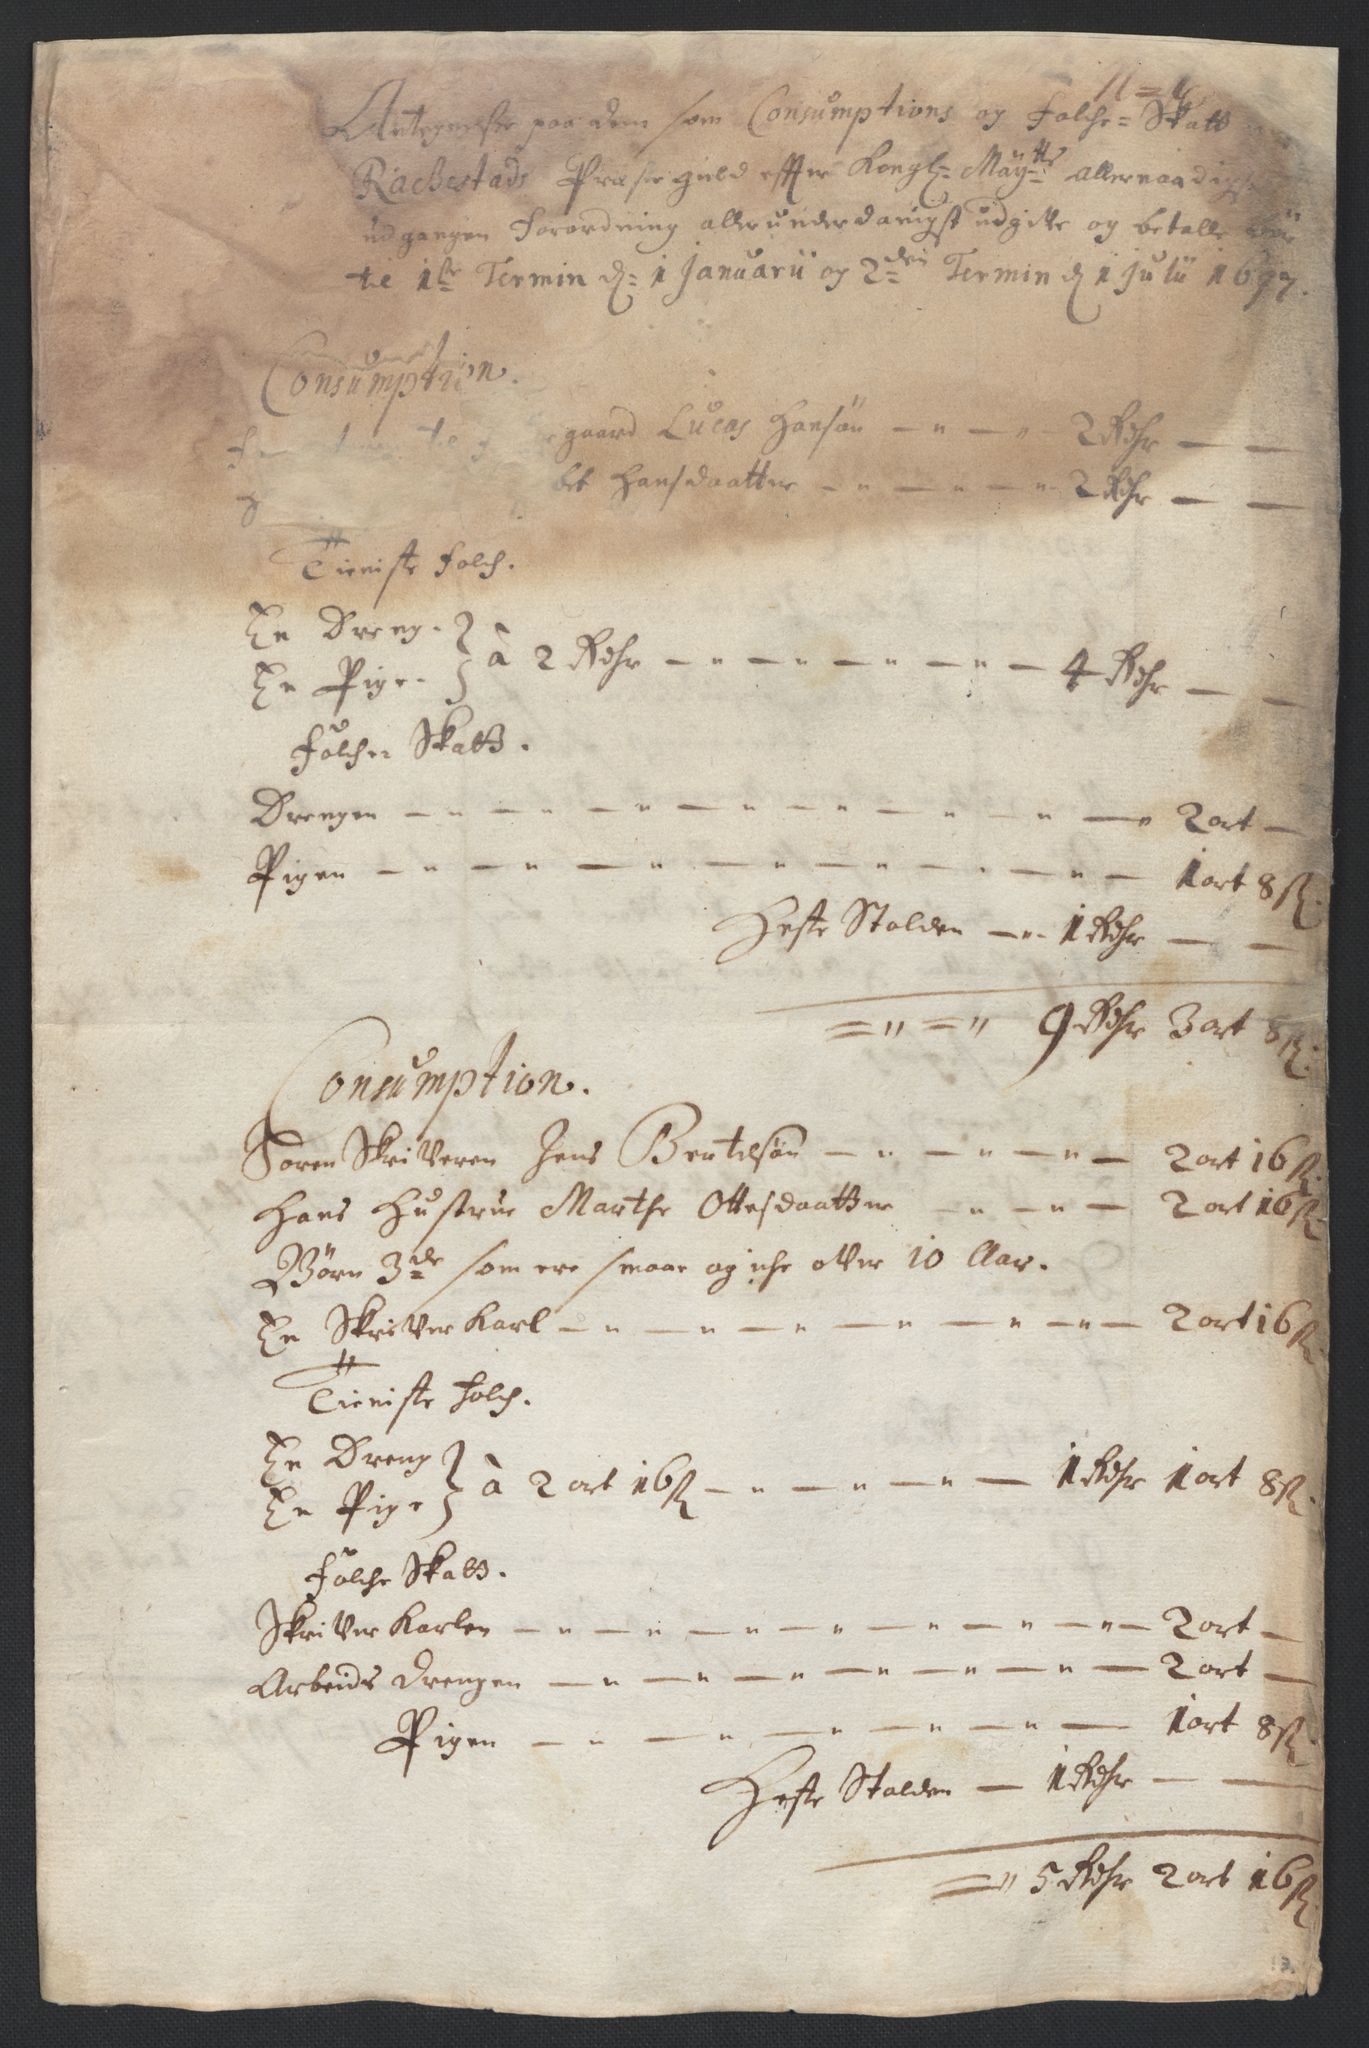 Antegnelse paa dem som Consumptions og Folche- Skatt
Rachestads Præstegield effter Kongl: Mäy:tts allernaadigste
udgangen Forordning allerunderdanigst udgifve og betalle bør
te 1ste Termin d: 1 Januarii og 2den Termin d 1 Julii 1697.
Consumption.
gaard Lucas Hansøn 2 Rdhr
bet Hansdaatter 2 Rdhr
Tieniste Folch.
En Dreng.
En Pige. } à 2 Rdhr 4 Rdhr
Folche Skatt.
Drengen 2 ort
Pigen 1 ort 8 ß.
Heste Stalden 1 Rdhr
9 Rdhr 3 ort 8 ß.
Consumption.
Soren Skrifveren Jens Bertelsøn 2 ort 16 ß.
Hans Hustrue Marthe Ottesdaatter 2 ort 16 ß
Børn 3de som ere smaae og iche ofver 10 Aar.
En Skrifver Karl 2 ort 16 ß
Tieniste Folch.
En Dreng
En Pige } à 2 ort 16 ß 1 Rdhr 1 ort 8 ß.
Folche Skatt.
Skrifver Karlen 2 ort
Arbeids drengen 2 ort
Pigen 1 ort 8 ß
Heste Stalden 1 Rdhr
5 Rdhr 2 ort 16 ß